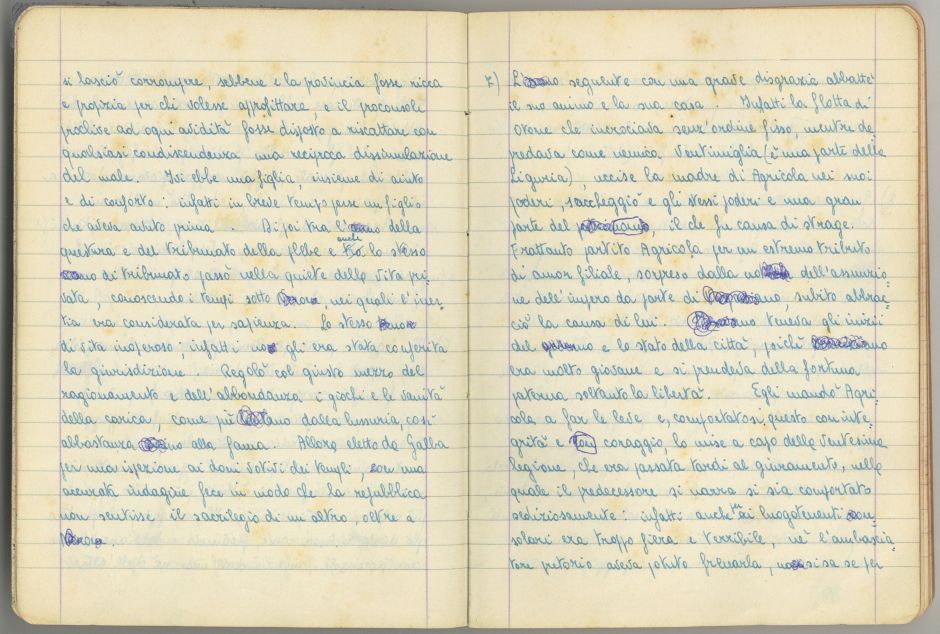 si lasciò corrompere, sebbene e la provincia fosse ricca
e propizia per chi volesse approfittare, e il proconsole
proclive ad ogni avidità fosse disposto a riscattare con
qualsiasi condiscendenza una reciproca dissimulazione
del male. Ivi ebbe una figlia, insieme di aiuto
e di conforto: infatti in breve tempo perse un figlio
che aveva avuto prima. Di poi tra l' della
questura e del tribunato della plebe e anche lo stesso
di tribunato passò nella quiete della vita pri=
vata, conoscendo i tempi sotto , nei quali l'iner=
zia era considerata per sapienza. Lo stesso
di vita inoperoso; infatti gli era stata conferita
la giurisdizione. Regolò col giusto mezzo del
ragionamento e dell'abbondanza i giochi e le vanità
della carica, come più dalla lussuria, così
abbastanza alla fama. Allora eletto da Galba
per una ispezione ai doni votivi dei templi, con una
accurata indagine fece in modo che la repubblica
non sentisse il sacrilegio di un altro, oltre a
7) seguente con una grave disgrazia abbatté
il suo animo e la sua casa. Infatti la flotta di
Otone che incrociava senz'ordine fisso, mentre de=
predava come nemica Ventimiglia (è una parte della
Liguria), uccise la madre di Agricola nei suoi
poderi, saccheggiò e gli stessi poderi e una gran
parte del , il che fu causa di strage.
Frattanto partito Agricola per un estremo tributo
di amor filiale, sorpreso dalla dell'assunzio=
ne dell'impero da parte di , subito abbrac=
ciò la causa di lui. teneva gli inizii
del e lo stato della città, poiché
era molto giovane e si prendeva della fortuna
paterna soltanto la libertà. Egli mandò Agri=
cola a far le leve e, comportatosi questo con inte=
grità e coraggio, lo mise a capo della ventesima
legione, che era passata tardi al giuramento, nella
quale il predecessore si narra si sia comportato
sediziosamente: infatti anche ai luogotenenti
solari era troppo fiera e terribile, né l'ambascia=
tore pretorio aveva potuto frenarla, si sa se per